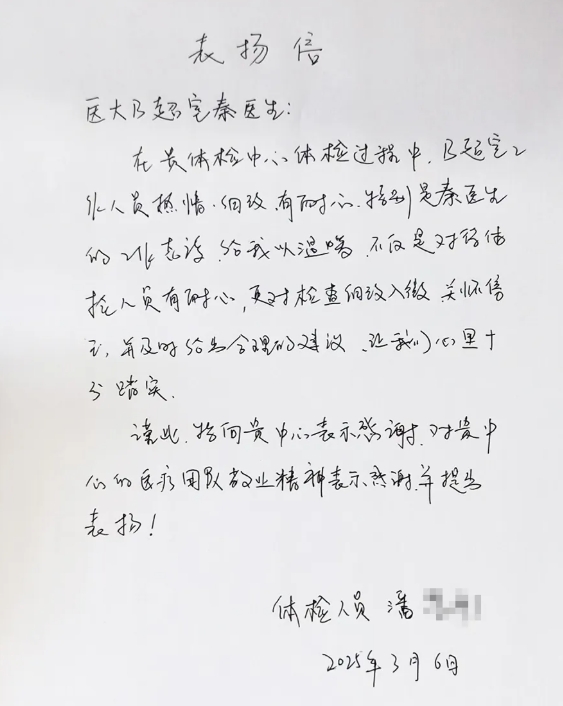 表扬信
医大B超室秦医生:
在贵体检中心体检过程中,B超室工
作人员热情、细致、有耐心,特别是秦医生
的工作态度,给我以温暖,不仅是对待体
检人员有耐心,更对检查细致入微,关怀倍
至,并及时给出合理的建议,让我们心里十
分踏实.
谨此,特向贵中心表示感谢,对贵中
心的医疗团队敬业精神表示感谢,并提出
表扬!
体检人员 潘
2025年3月6日